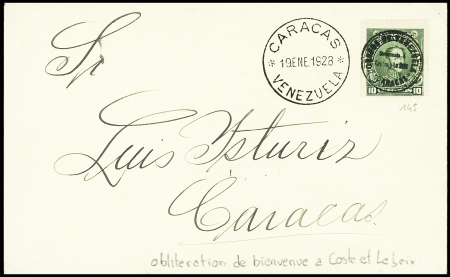 CARACAS
* 19 ENE. 1928 *
VENEZUELA
10 10
145
Sr
Luis Ysturiz
Caracas
obliteration de bienvenue a Coste et Le brix